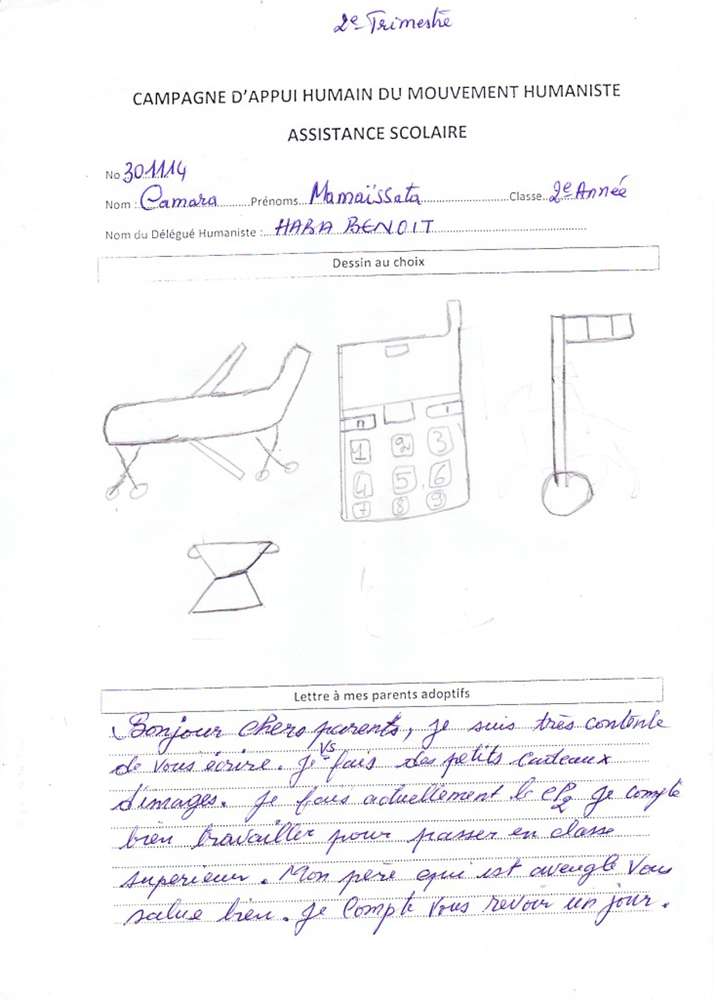 2e Trimestre
CAMPAGNE D'APPUI HUMAIN DU MOUVEMENT HUMANISTE
ASSISTANCE SCOLAIRE
No 301114
Nom : Camara Prénoms Mamaïssata Classe 2e Année
Nom du Délégué Humaniste : HABA BENOIT
Dessin au choix
1 2 3
4 5 6
7 8 9
Lettre à mes parents adoptifs
Bonjour chers parents, je suis très contente
de vous écrire. Je vs fais des petits cadeaux
d'images. Je fais actuellement le CP2 Je compte
bien travailler pour passer en classe
superieur. Mon père qui est aveugle vous
salue bien. Je compte vous revoir un jour.